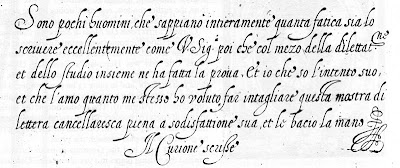 Sono pochi huomini, che sappiano intieramente quanta fatica sia lo
scriuere eccellentemente come V. Sig.ª poi che col mezo della dilettat.ne
et dello studio insieme ne ha fatta la proua. Et io che so l'intento suo,
et che l'amo quanto me stesso ho voluto far intagliare questa mostra di
lettera cancellaresca piena a sodisfattione sua, et le bacio la mano.
Il Curione scrisse